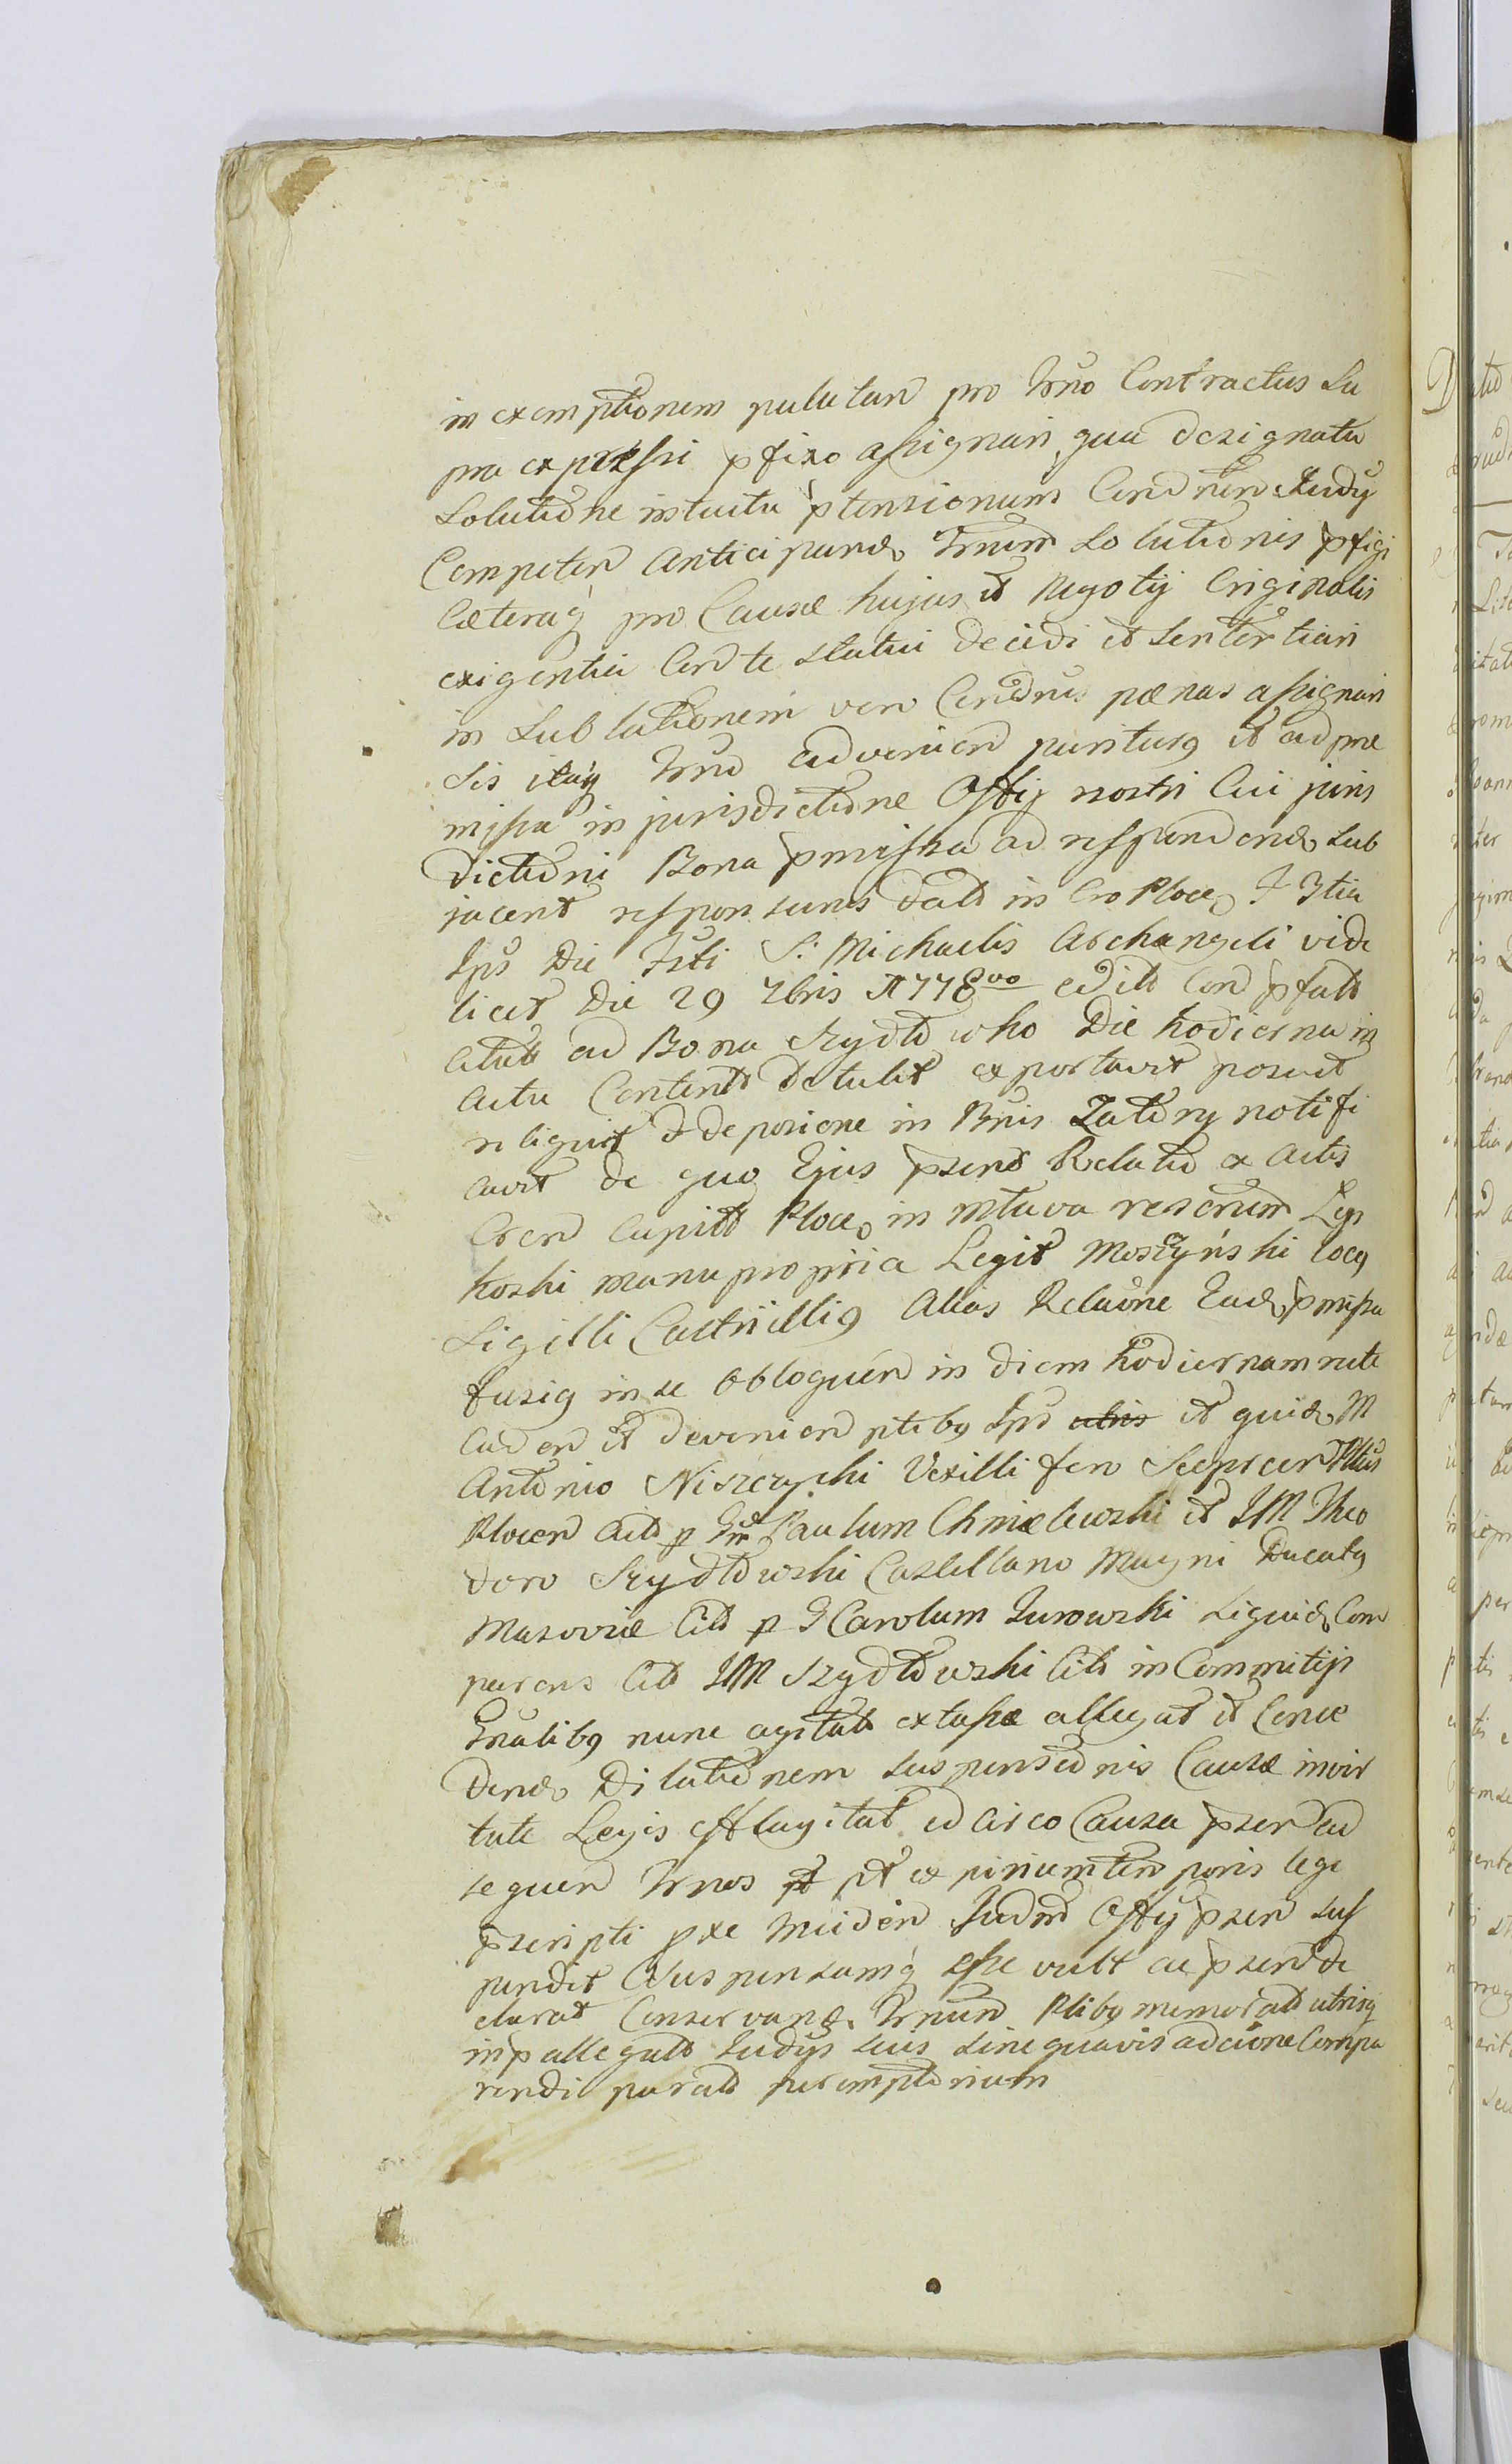 in exemptionem pulutan pro trno Contractus Su
pra expressi pfixo assignari, qua designata
Solutione intuitu ptensionum Condnen Judij
Competen anticipand trnum Solutionis pfigi
Caeteraq pro Causae hujus et Negotij Originalis
exigentia Cond te statui decidi et sententiari
in Sublationem vero Condnis paenas assignari
Sis itaq trno advenien pariturq et ad prae
missa in jurisdictione Offij nostri Cui juris
dictioni Bona pmissa ad respondend Sub
jacent responsurus Datt in Cro Ploce F 3tia
Ips Die Fsti S: Michaelis Archangeli vide
licet Die 29 7bris A 778vo edilt Con pfatt
Citatt ad Bona Szydłowko Die hodierna in
actu Content detulit exportavit posuit
reliquit & de posicione in Bnis Zatory notifi
cavit de quo Ejus pzens Relatio ex actis
Cren Capitt Ploce in mtava rescrium Lep
koski manu propria Legit Moszyński Locq
Sigilli Castriilliq Alias Relaone Ead pmissa
fusiq in se obloquen in diem hodiernam rite
caden et devenien ptibq Ips et quid M
Antonio Niszczycki Vexilli fero Seepscen
Plocen Citt p Gn Paulum Chmielewski et IM Theo
doro Szydłowski Castellano Magni Ducatq
Masoviae Citt p G Carolum Jurowski Siquid Com
parens Citt IM Szydłowski Citt in Commitijs
Gnalibq nunc agitatt extasse allegat et Conce
dend Dilationem suspensionis Causae in vir
tute Legis efflagitat idcirco Causa pzen ad
sequen trnos pt ex pirium tem poris lege
pscripti pxe incident Judm Offij pzen sus
pendit Suspensamq esse vult ac pzent de
clarat Conservand trnum Ptibq memoratt utrisq
in p allegatt Judijs suis sine quavis adcione Compa
rendi paratt peremptorium